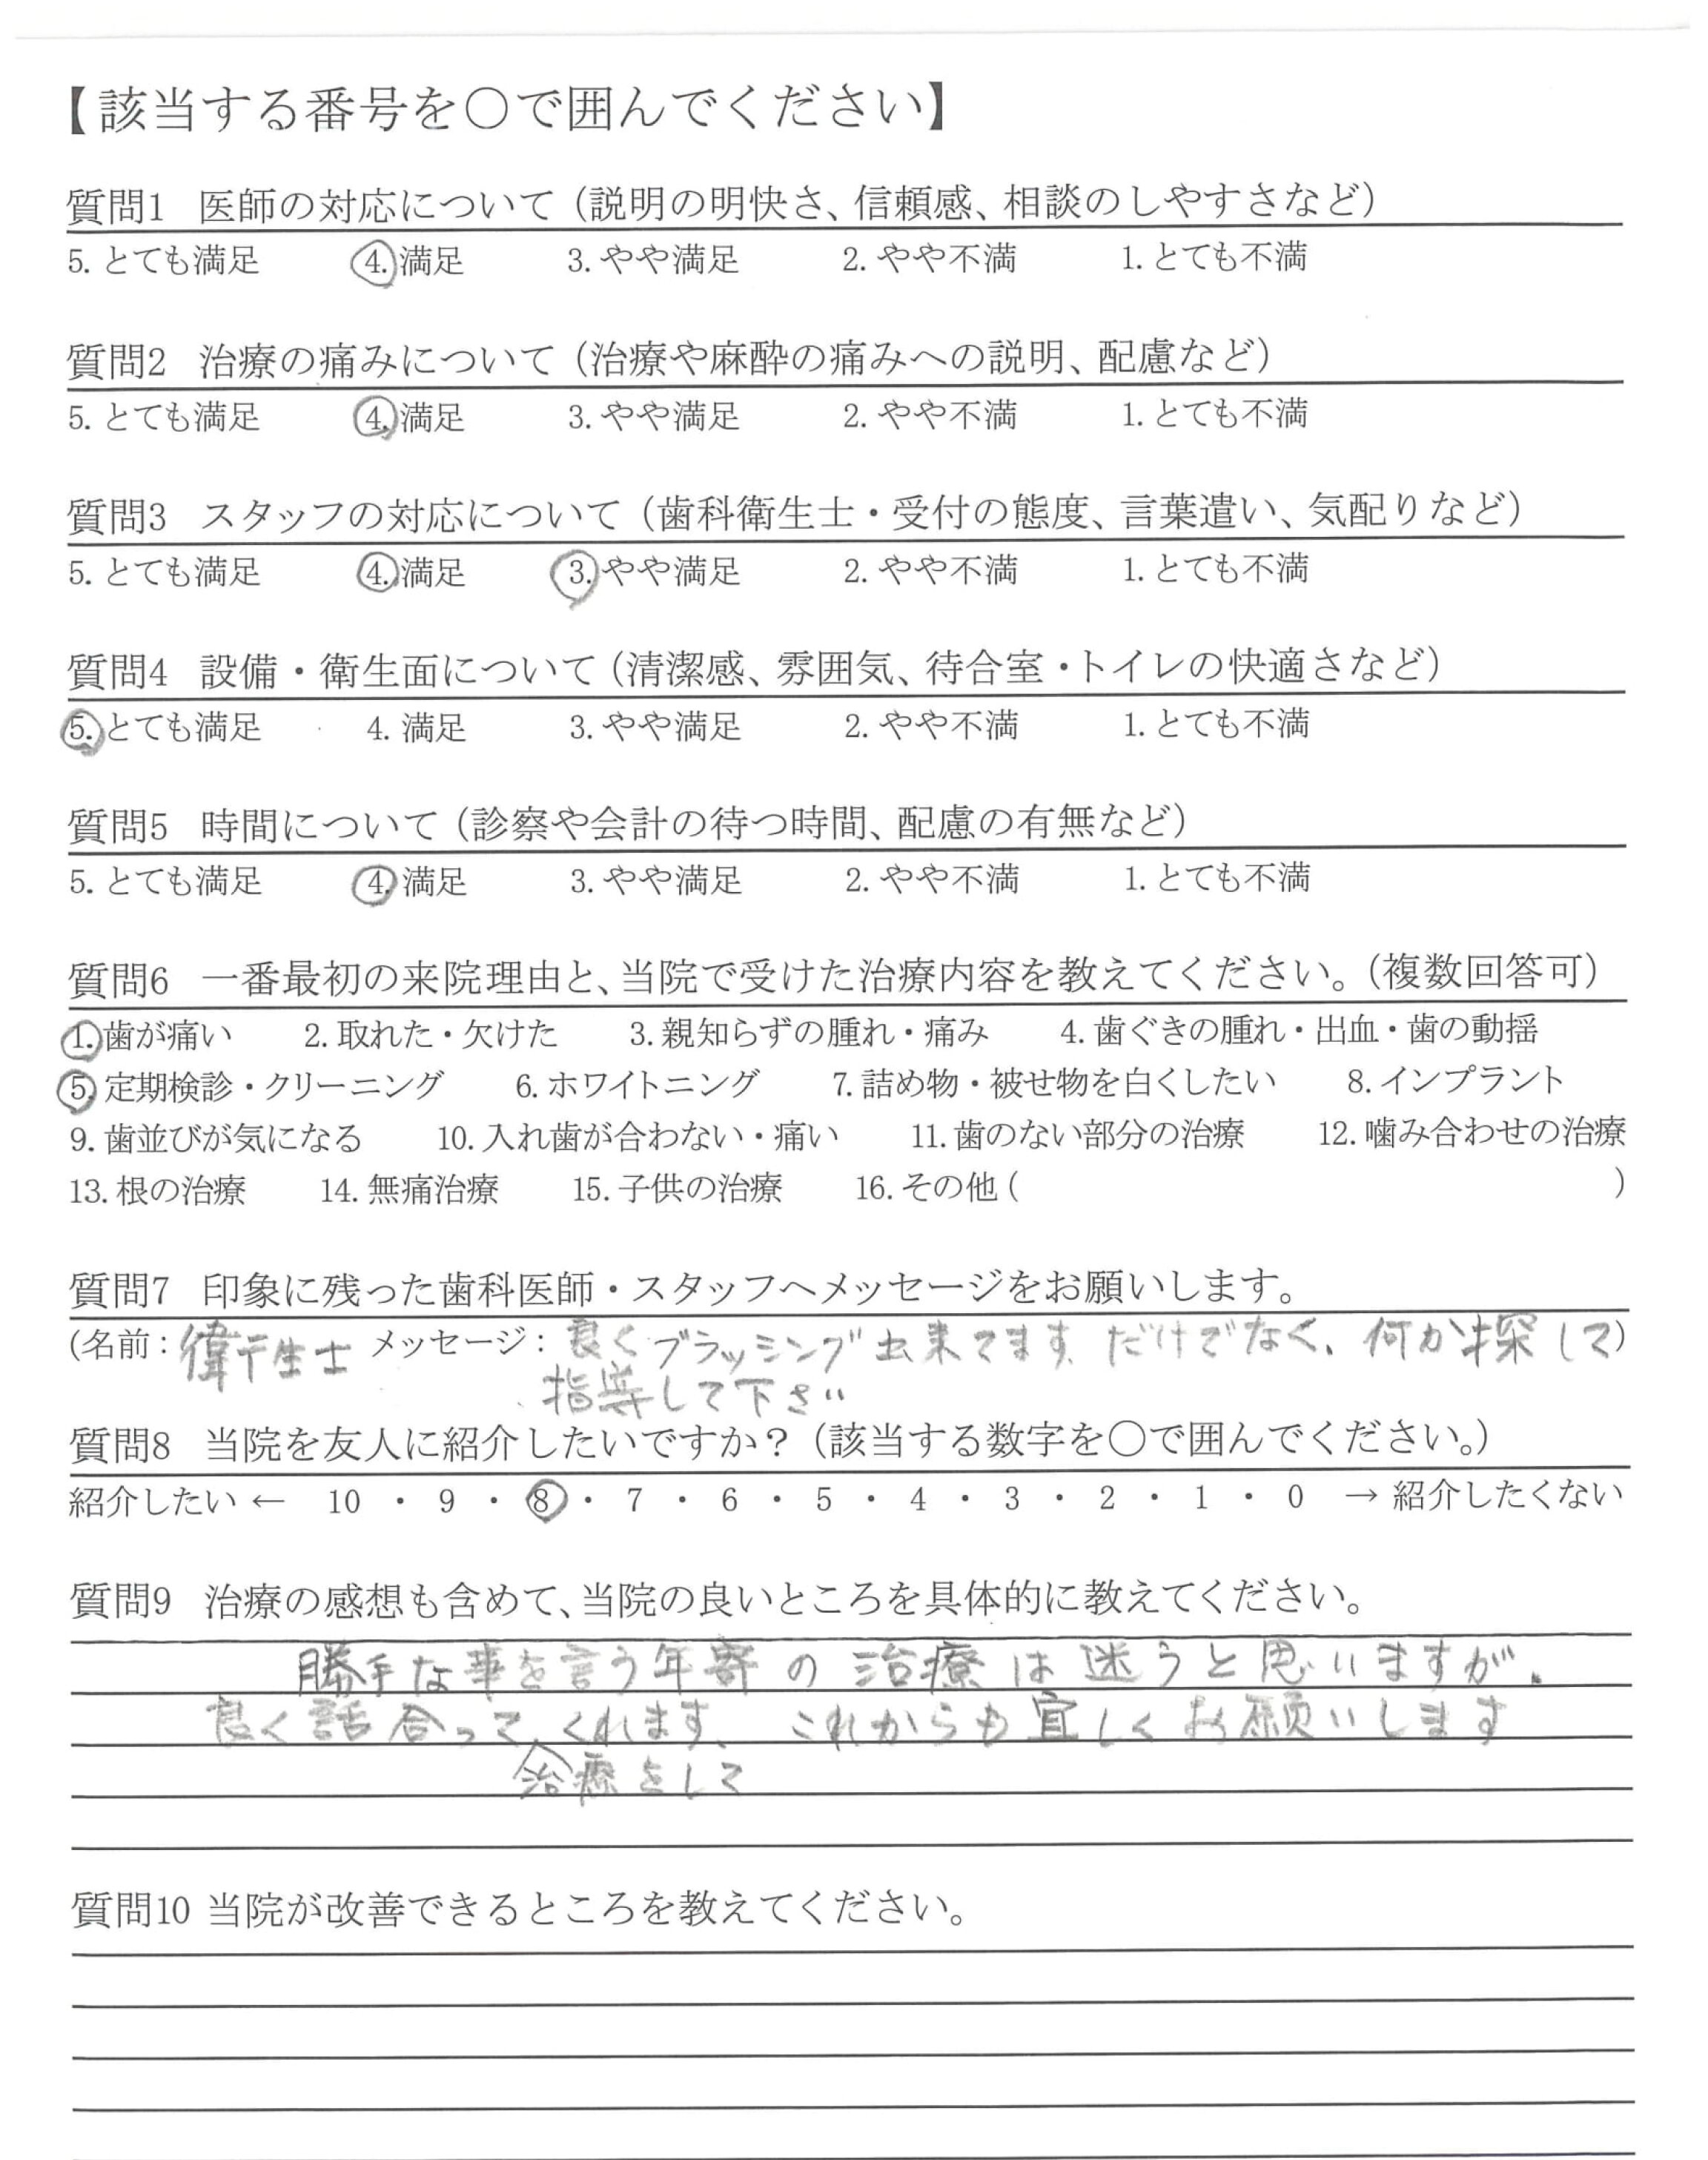 【該当する番号を○で囲んでください】
質問1 医師の対応について（説明の明快さ、信頼感、相談のしやすさなど）
5. とても満足 4. 満足 3. やや満足 2. やや不満 1. とても不満
質問2 治療の痛みについて（治療や麻酔の痛みへの説明、配慮など）
5. とても満足 4. 満足 3. やや満足 2. やや不満 1. とても不満
質問3 スタッフの対応について（歯科衛生士・受付の態度、言葉遣い、気配りなど）
5. とても満足 4. 満足 3. やや満足 2. やや不満 1. とても不満
質問4 設備・衛生面について（清潔感、雰囲気、待合室・トイレの快適さなど）
5. とても満足 4. 満足 3. やや満足 2. やや不満 1. とても不満
質問5 時間について（診察や会計の待つ時間、配慮の有無など）
5. とても満足 4. 満足 3. やや満足 2. やや不満 1. とても不満
質問6 一番最初の来院理由と、当院で受けた治療内容を教えてください。（複数回答可）
1. 歯が痛い 2. 取れた・欠けた 3. 親知らずの腫れ・痛み 4. 歯ぐきの腫れ・出血・歯の動揺
5. 定期検診・クリーニング 6. ホワイトニング 7. 詰め物・被せ物を白くしたい 8. インプラント
9. 歯並びが気になる 10. 入れ歯が合わない・痛い 11. 歯のない部分の治療 12. 噛み合わせの治療
13. 根の治療 14. 無痛治療 15. 子供の治療 16. その他（ ）
質問7 印象に残った歯科医師・スタッフへメッセージをお願いします。
（名前：衛生士 メッセージ：良くブラッシング出来てます、だけでなく、何か探して）
指導して下さい
質問8 当院を友人に紹介したいですか？（該当する数字を○で囲んでください。）
紹介したい ← 10 ・ 9 ・ 8 ・ 7 ・ 6 ・ 5 ・ 4 ・ 3 ・ 2 ・ 1 ・ 0 → 紹介したくない
質問9 治療の感想も含めて、当院の良いところを具体的に教えてください。
勝手な事を言う年寄の治療は迷うと思いますが、
良く話合って、くれます、これからも宜しくお願いします
治療をして
質問10 当院が改善できるところを教えてください。